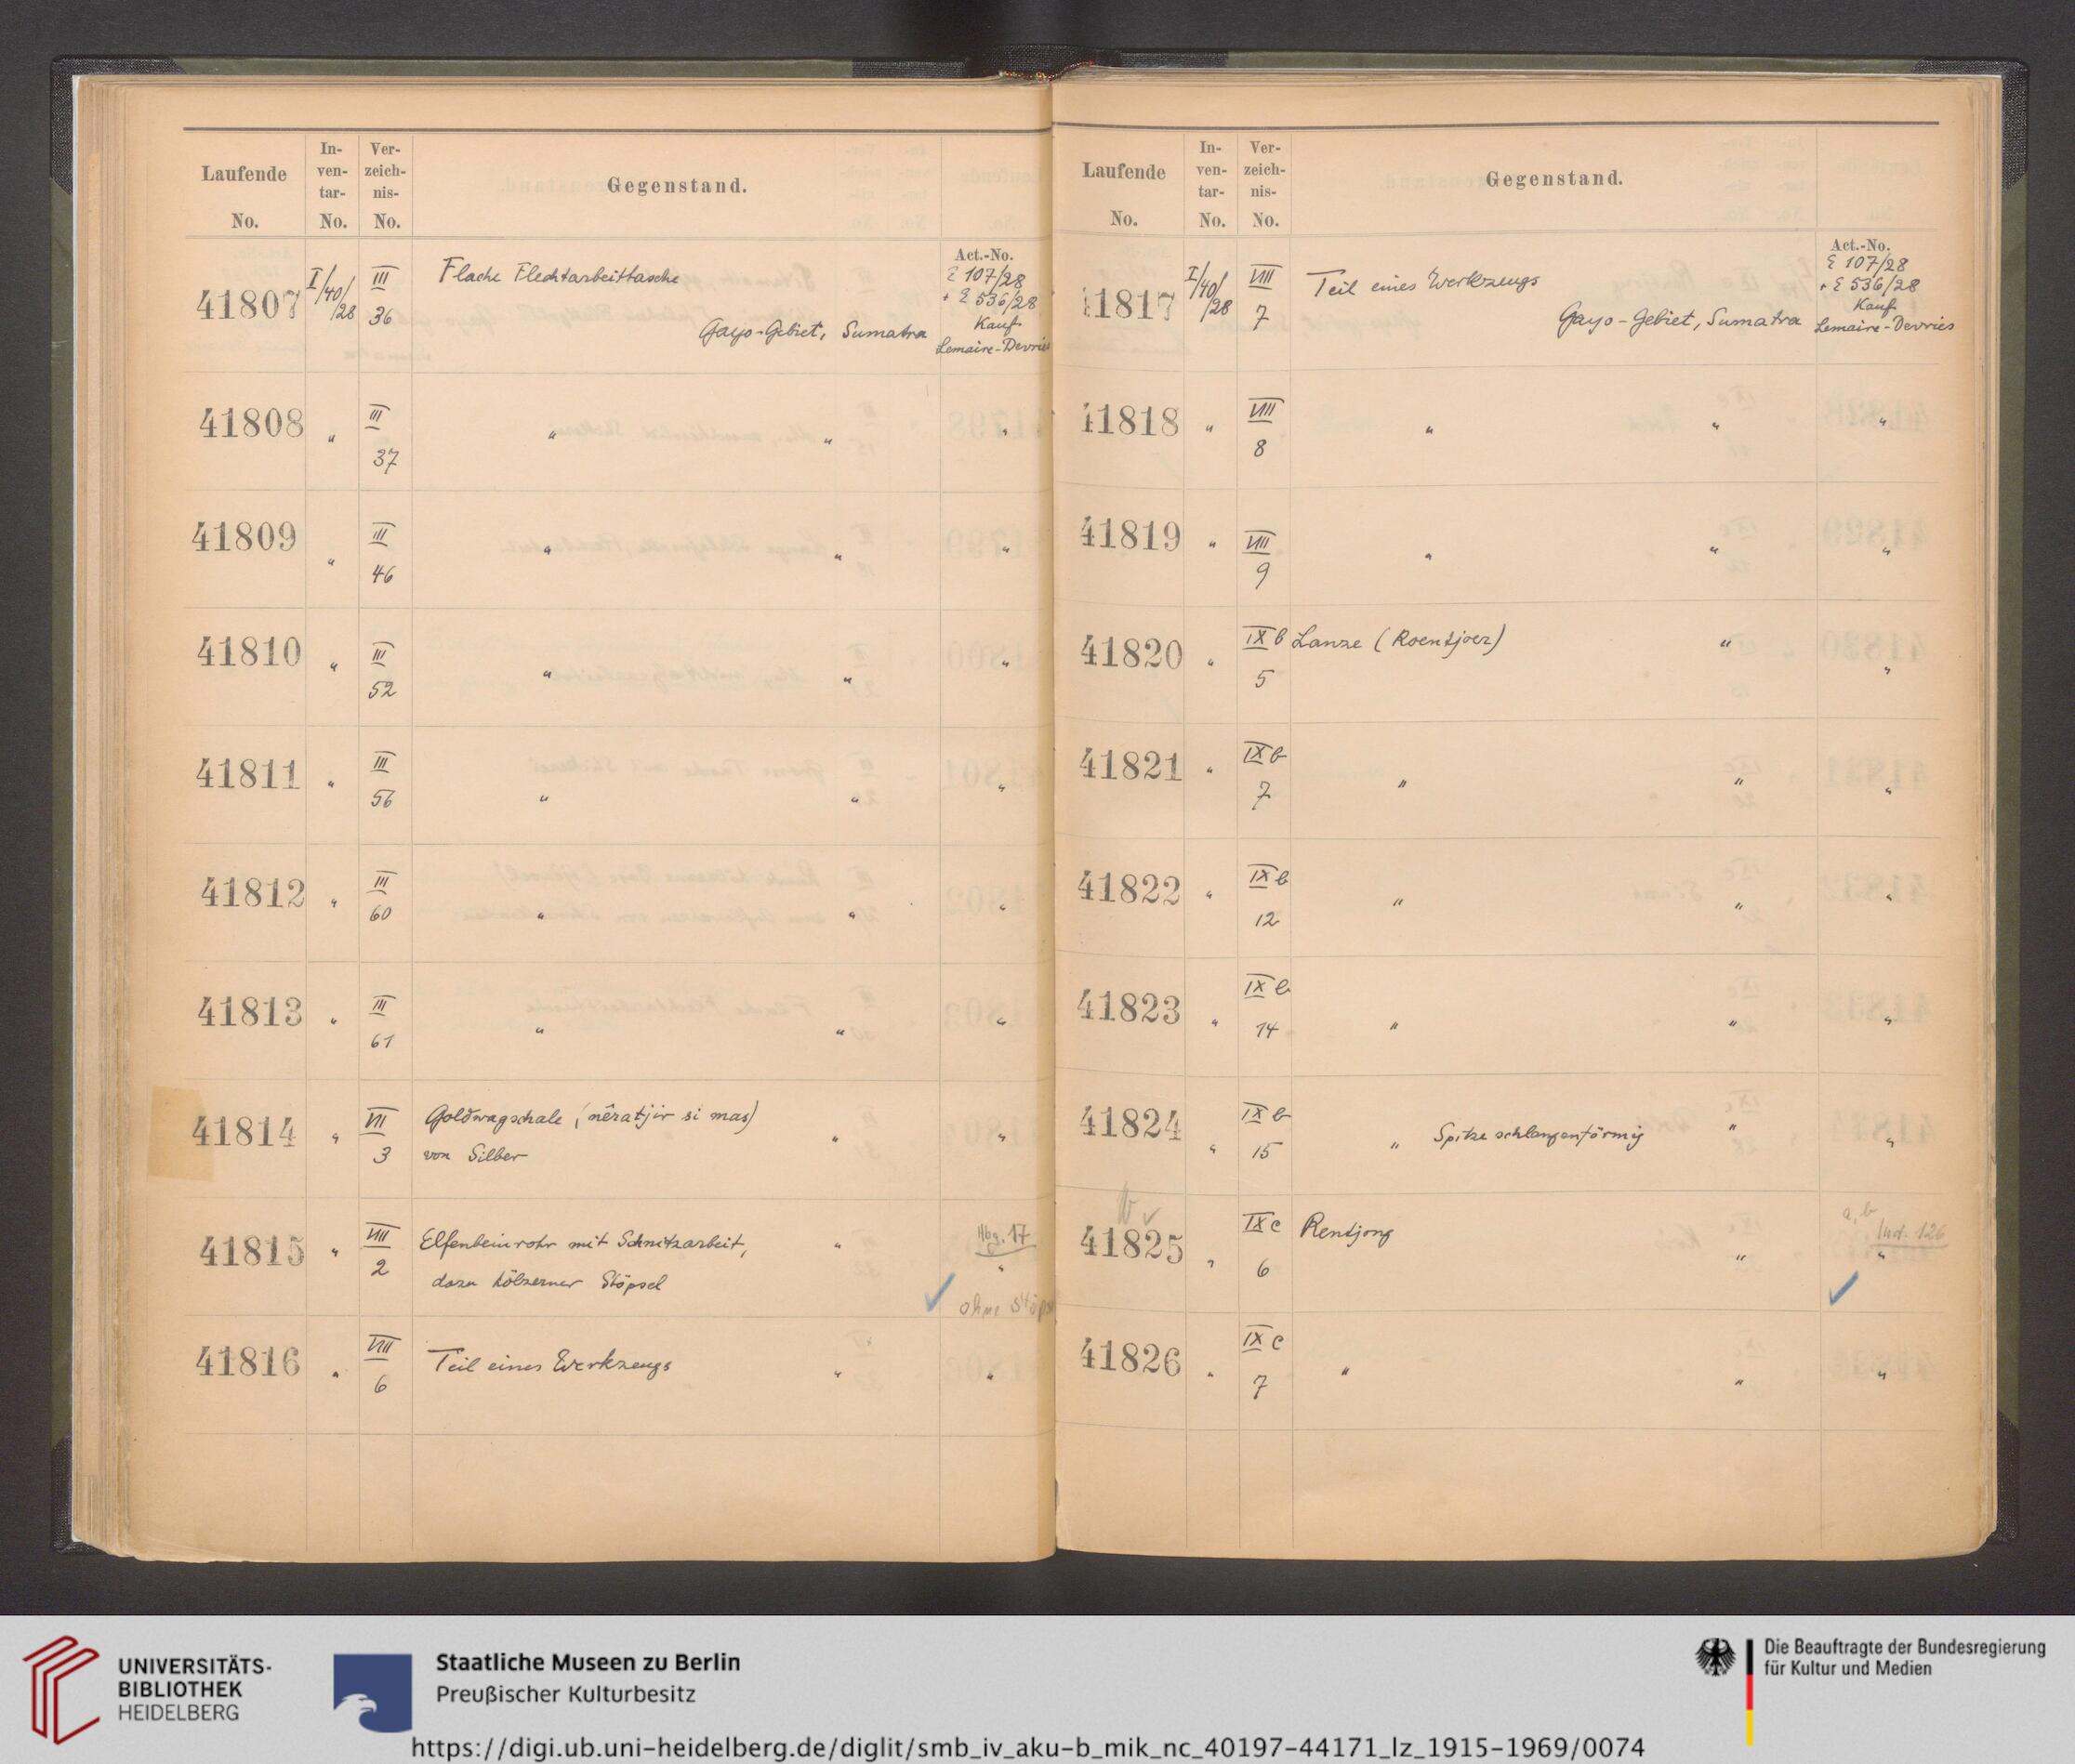 Laufende No.
In-ven-tar-No.
Ver-zeich-nis-No.
Gegenstand.
41807 I/40/28 III 36 Flache Flechtarbeittasche
Gayo-Gebiet, Sumatra
Act.-No.
E 107/28
+ E 536/28
Kauf
Lemaire-Devries
41808 " III 37 " " "
41809 " III 46 " " "
41810 " III 52 " " "
41811 " III 56 " " "
41812 " III 60 " " "
41813 " III 61 " " "
41814 " VII 3 Goldwagschale (nêratjir si mas) " "
von Silber
41815 " VIII 2 Elfenbeinrohr mit Schnitzarbeit, " Hbg. 17
dazu hölzerner Stöpsel "
✓ ohne Stöps
41816 " VIII 6 Teil eines Werkzeugs " "
Laufende No.
In-ven-tar-No.
Ver-zeich-nis-No.
Gegenstand.
41817 I/40/28 VIII 7 Teil eines Werkzeugs
Gayo-Gebiet, Sumatra
Act.-No.
E 107/28
+ E 536/28
Kauf
Lemaire-Devries
41818 " VIII 8 " " "
41819 " VIII 9 " " "
41820 " IX b 5 Lanze (Roentjoer) " "
41821 " IX b 7 " " "
41822 " IX b 12 " " "
41823 " IX b 14 " " "
41824 " IX b 15 " Spitze schlangenförmig " "
41825 " IX c 6 Rentjong " a, b
Ind. 126
"
✓
41826 " IX c 7 " " "
UNIVERSITÄTS-
BIBLIOTHEK
HEIDELBERG
Staatliche Museen zu Berlin
Preußischer Kulturbesitz
Die Beauftragte der Bundesregierung
für Kultur und Medien
https://digi.ub.uni-heidelberg.de/diglit/smb_iv_aku-b_mik_nc_40197-44171_lz_1915-1969/0074